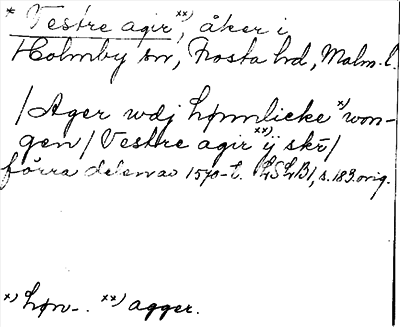 * Vestre agir xx), åker i
Holmby sn, Frosta hd, Malm. l.
/Ager wdj hønnlicke x) won-
gen/ Vestre agir xx) ij skr/
förra delen av 1570-t. LSLB1, s. 183 orig.
x) høn-. xx) agger.